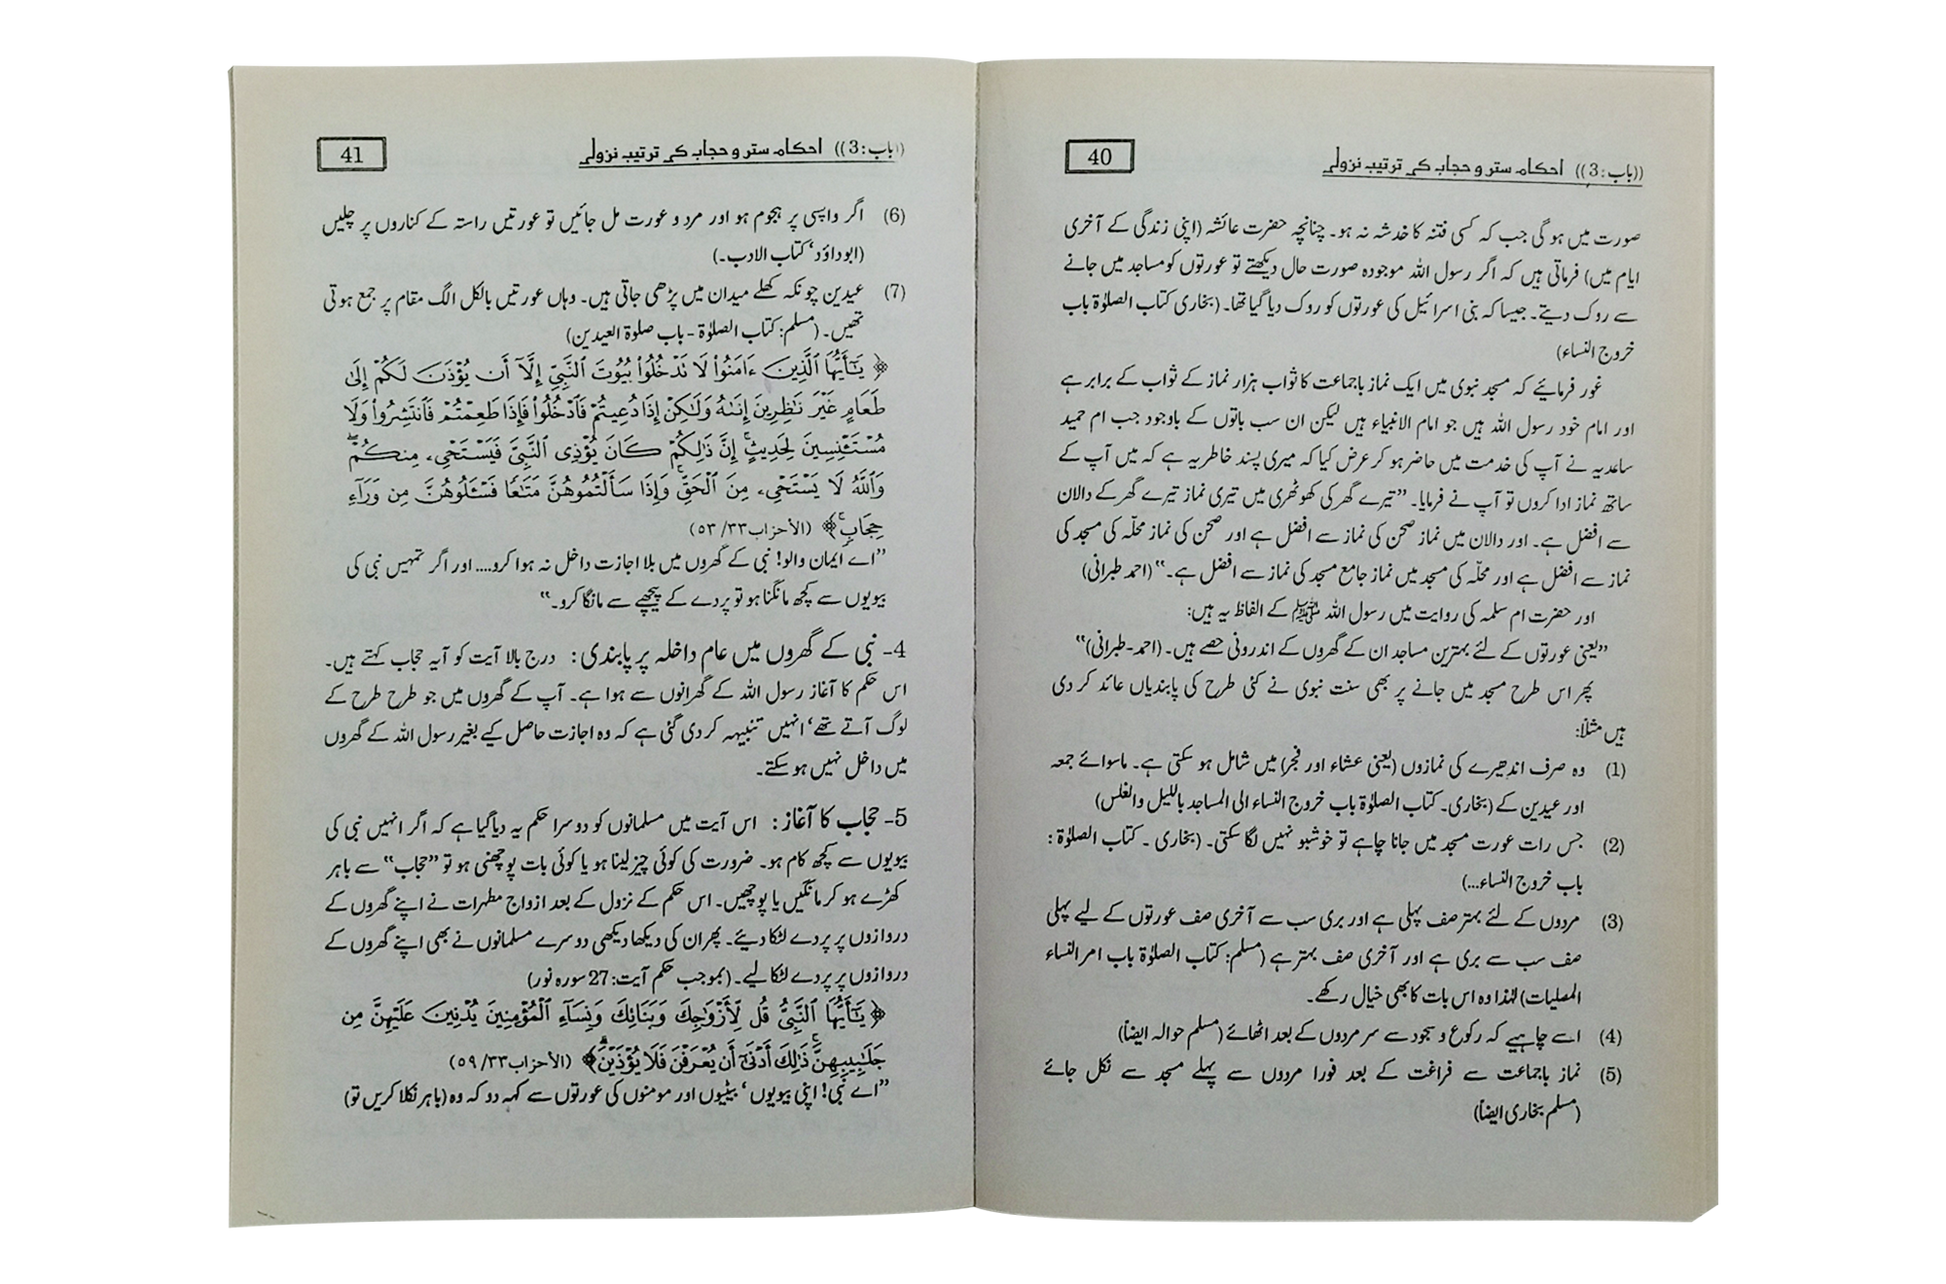 ((باب: 3)) احکام ستر و حجاب کی ترتیب نزولی
40
صورت میں ہو گی جب کہ کسی فتنہ کا خدشہ نہ ہو۔ چنانچہ حضرت عائشہ (اپنی زندگی کے آخری
ایام میں) فرماتی ہیں کہ اگر رسول اللہ موجودہ صورت حال دیکھتے تو عورتوں کو مساجد میں جانے
سے روک دیتے۔ جیسا کہ بنی اسرائیل کی عورتوں کو روک دیا گیا تھا۔ (بخاری کتاب الصلوٰۃ باب
خروج النساء)
غور فرمائیے کہ مسجد نبوی میں ایک نماز باجماعت کا ثواب ہزار نماز کے ثواب کے برابر ہے
اور امام خود رسول اللہ ہیں جو امام الانبیاء ہیں لیکن ان سب باتوں کے باوجود جب ام حمید
ساعدیہ نے آپ کی خدمت میں حاضر ہو کر عرض کیا کہ میری پسند خاطر یہ ہے کہ میں آپ کے
ساتھ نماز ادا کروں تو آپ نے فرمایا۔ "تیرے گھر کی کوٹھری میں تیری نماز تیرے گھر کے دالان
سے افضل ہے۔ اور دالان میں نماز صحن کی نماز سے افضل ہے اور صحن کی نماز محلّہ کی مسجد کی
نماز سے افضل ہے اور محلّہ کی مسجد میں نماز جامع مسجد کی نماز سے افضل ہے۔" (احمد طبرانی)
اور حضرت ام سلمہ کی روایت میں رسول اللہ ﷺ کے الفاظ یہ ہیں:
"یعنی عورتوں کے لئے بہترین مساجد ان کے گھروں کے اندرونی حصے ہیں۔ (احمد-طبرانی)"
پھر اس طرح مسجد میں جانے پر بھی سنت نبوی نے کئی طرح کی پابندیاں عائد کر دی
ہیں مثلاً:
(1) وہ صرف اندھیرے کی نمازوں (یعنی عشاء اور فجر) میں شامل ہو سکتی ہے۔ ماسوائے جمعہ
اور عیدین کے (بخاری۔ کتاب الصلوٰۃ باب خروج النساء الی المساجد باللیل والغلس)
(2) جس رات عورت مسجد میں جانا چاہے تو خوشبو نہیں لگا سکتی۔ (بخاری ۔ کتاب الصلوٰۃ :
باب خروج النساء...)
(3) مردوں کے لئے بہتر صف پہلی ہے اور بری سب سے آخری صف عورتوں کے لیے پہلی
صف سب سے بری ہے اور آخری صف بہتر ہے (مسلم: کتاب الصلوٰۃ باب امر النساء
المصلیات) لہٰذا وہ اس بات کا بھی خیال رکھے۔
(4) اسے چاہیے کہ رکوع و سجود سے سر مردوں کے بعد اٹھائے (مسلم حوالہ ایضاً)
(5) نماز باجماعت سے فراغت کے بعد فورا مردوں سے پہلے مسجد سے نکل جائے
(مسلم بخاری ایضاً)
((باب: 3)) احکام ستر و حجاب کی ترتیب نزولی
41
(6) اگر واپسی پر ہجوم ہو اور مرد و عورت مل جائیں تو عورتیں راستہ کے کناروں پر چلیں
(ابوداؤد' کتاب الادب۔)
(7) عیدین چونکہ کھلے میدان میں پڑھی جاتی ہیں۔ وہاں عورتیں بالکل الگ مقام پر جمع ہوتی
تھیں۔ (مسلم: کتاب الصلوٰۃ - باب صلوۃ العیدین)
﴿ يَـٰٓأَيُّهَا ٱلَّذِينَ ءَامَنُوا۟ لَا تَدْخُلُوا۟ بُيُوتَ ٱلنَّبِىِّ إِلَّآ أَن يُؤْذَنَ لَكُمْ إِلَىٰ
طَعَامٍ غَيْرَ نَـٰظِرِينَ إِنَىٰهُ وَلَـٰكِنْ إِذَا دُعِيتُمْ فَٱدْخُلُوا۟ فَإِذَا طَعِمْتُمْ فَٱنتَشِرُوا۟ وَلَا
مُسْتَـْٔنِسِينَ لِحَدِيثٍ ۚ إِنَّ ذَٰلِكُمْ كَانَ يُؤْذِى ٱلنَّبِىَّ فَيَسْتَحْىِۦ مِنكُمْ ۖ
وَٱللَّهُ لَا يَسْتَحْىِۦ مِنَ ٱلْحَقِّ ۚ وَإِذَا سَأَلْتُمُوهُنَّ مَتَـٰعًا فَسْـَٔلُوهُنَّ مِن وَرَآءِ
حِجَابٍ ۚ ﴾ (الأحزاب٣٣/ ٥٣)
"اے ایمان والو! نبی کے گھروں میں بلا اجازت داخل نہ ہوا کرو.... اور اگر تمہیں نبی کی
بیویوں سے کچھ مانگنا ہو تو پردے کے پیچھے سے مانگا کرو۔"
4- نبی کے گھروں میں عام داخلہ پر پابندی: درج بالا آیت کو آیہ حجاب کہتے ہیں۔
اس حکم کا آغاز رسول اللہ کے گھرانوں سے ہوا ہے۔ آپ کے گھروں میں جو طرح طرح کے
لوگ آتے تھے' انہیں تنبیہہ کر دی گئی ہے کہ وہ اجازت حاصل کیے بغیر رسول اللہ کے گھروں
میں داخل نہیں ہو سکتے۔
5- حجاب کا آغاز: اس آیت میں مسلمانوں کو دوسرا حکم یہ دیا گیا ہے کہ اگر انہیں نبی کی
بیویوں سے کچھ کام ہو۔ ضرورت کی کوئی چیز لینا ہو یا کوئی بات پوچھنی ہو تو "حجاب" سے باہر
کھڑے ہو کر مانگیں یا پوچھیں۔ اس حکم کے نزول کے بعد ازواج مطہرات نے اپنے گھروں کے
دروازوں پر پردے لٹکا دیئے۔ پھر ان کی دیکھا دیکھی دوسرے مسلمانوں نے بھی اپنے گھروں کے
دروازوں پر پردے لٹکا لیے۔ (بموجب حکم آیت: 27 سورہ نور)
﴿ يَـٰٓأَيُّهَا ٱلنَّبِىُّ قُل لِّأَزْوَٰجِكَ وَبَنَاتِكَ وَنِسَآءِ ٱلْمُؤْمِنِينَ يُدْنِينَ عَلَيْهِنَّ مِن
جَلَـٰبِيبِهِنَّ ۚ ذَٰلِكَ أَدْنَىٰٓ أَن يُعْرَفْنَ فَلَا يُؤْذَيْنَ ۗ ﴾ (الأحزاب٣٣/ ٥٩)
"اے نبی! اپنی بیویوں' بیٹیوں اور مومنوں کی عورتوں سے کہہ دو کہ وہ (باہر نکلا کریں تو)